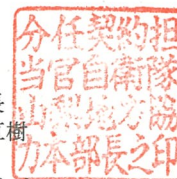 分任契約担
当官自衛隊
山梨地方協
力本部長之印
樹